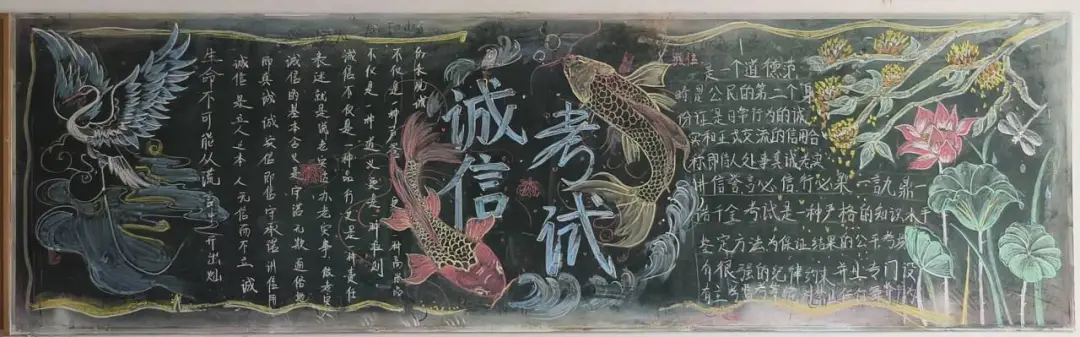 生命不可能从谎言中开出灿
诚信是立人之本 人无信而不立 诚
即真诚诚实信即信守承诺讲信用
诚信的基本含义是守诺无欺通俗地
表述就是说老实话办老实事做老实
诚信不仅是一种品行更是一种责任
不仅是一种道义更是一种准则
不仅是一种声 更是一种高尚品
诚信
考试
诚信
是一个道德范
畴是公民的第二个身
份证是日常行为的诚
实和正式交流的信用合
称即待人处事真诚老实
讲信誉言必信行必果一言九鼎
诺千金考试是一种严格的知识水平
鉴定方法为保证结果的公平考场
有很强的纪律约束并且专门设
有主考监考等